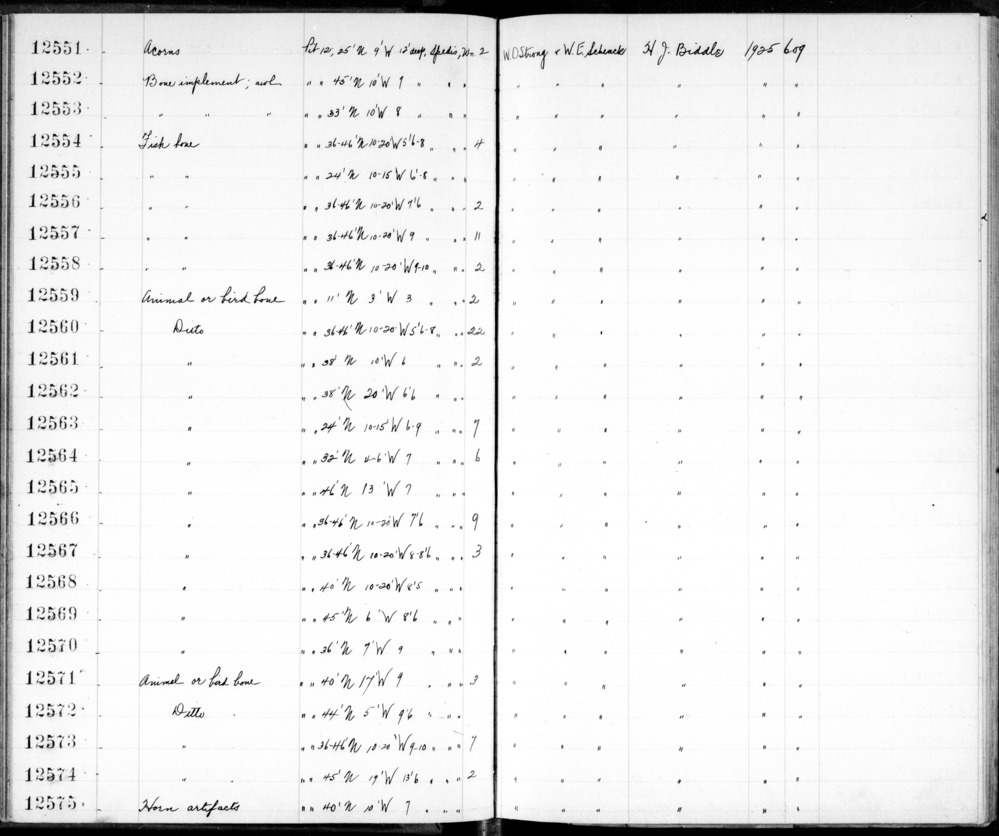 12551 Acorns Pit 12, 25' N 9' W 12' deep, Spedis, Wn. 2 W.D. Strong & W.E. Schenck H. J. Biddle 1925 609
12552 Bone implement; awl " " 45' N 10' W 7 " " " " " " " " "
12553 " " " " " 33' N 10' W 8 " " " " " " " " "
12554 Fish bone " " 36-46' N 10-20' W 5'6-8 " " " 4 " " " " " "
12555 " " " " 24' N 10-15 W 6'-8 " " " " " " " " "
12556 " " " " 36-46' N 10-20' W 7'6 " " " 2 " " " " " "
12557 " " " " 36-46' N 10-20' W 9 " " " 11 " " " " " "
12558 " " " " 36-46' N 10-20' W 9-10 " " " 2 " " " " " "
12559 Animal or bird bone " " 11' N 3' W 3 " " " 2 " " " " " "
12560 Ditto " " 36-46' N 10-20' W 5'6-8 " " " 22 " " " " " "
12561 " " " 38' N 10' W 6 " " " 2 " " " " " "
12562 " " " 38' N 20' W 6'6 " " " " " " " " "
12563 " " " 24' N 10-15' W 6-9 " " " 7 " " " " " "
12564 " " " 32' N 4-6' W 7 " " " 6 " " " " " "
12565 " " " 46' N 13' W 7 " " " " " " " " "
12566 " " " 36-46' N 10-20' W 7'6 " " " 9 " " " " " "
12567 " " " 36-46' N 10-20' W 8-8'6 " " " 3 " " " " " "
12568 " " " 40' N 10-20' W 8'5 " " " " " " " " "
12569 " " " 45' N 6' W 8'6 " " " " " " " " "
12570 " " " 36' N 7' W 9 " " " " " " " " "
12571 Animal or bird bone " " 40' N 17' W 9 " " " 3 " " " " " "
12572 Ditto " " 44' N 5' W 9'6 " " " " " " " " "
12573 " " " 36-46' N 10-20' W 9-10 " " " 7 " " " " " "
12574 " " " 45' N 19' W 13'6 " " " 2 " " " " " "
12575 Horn artifacts " " 40' N 10' W 7 " " " " " " " " "